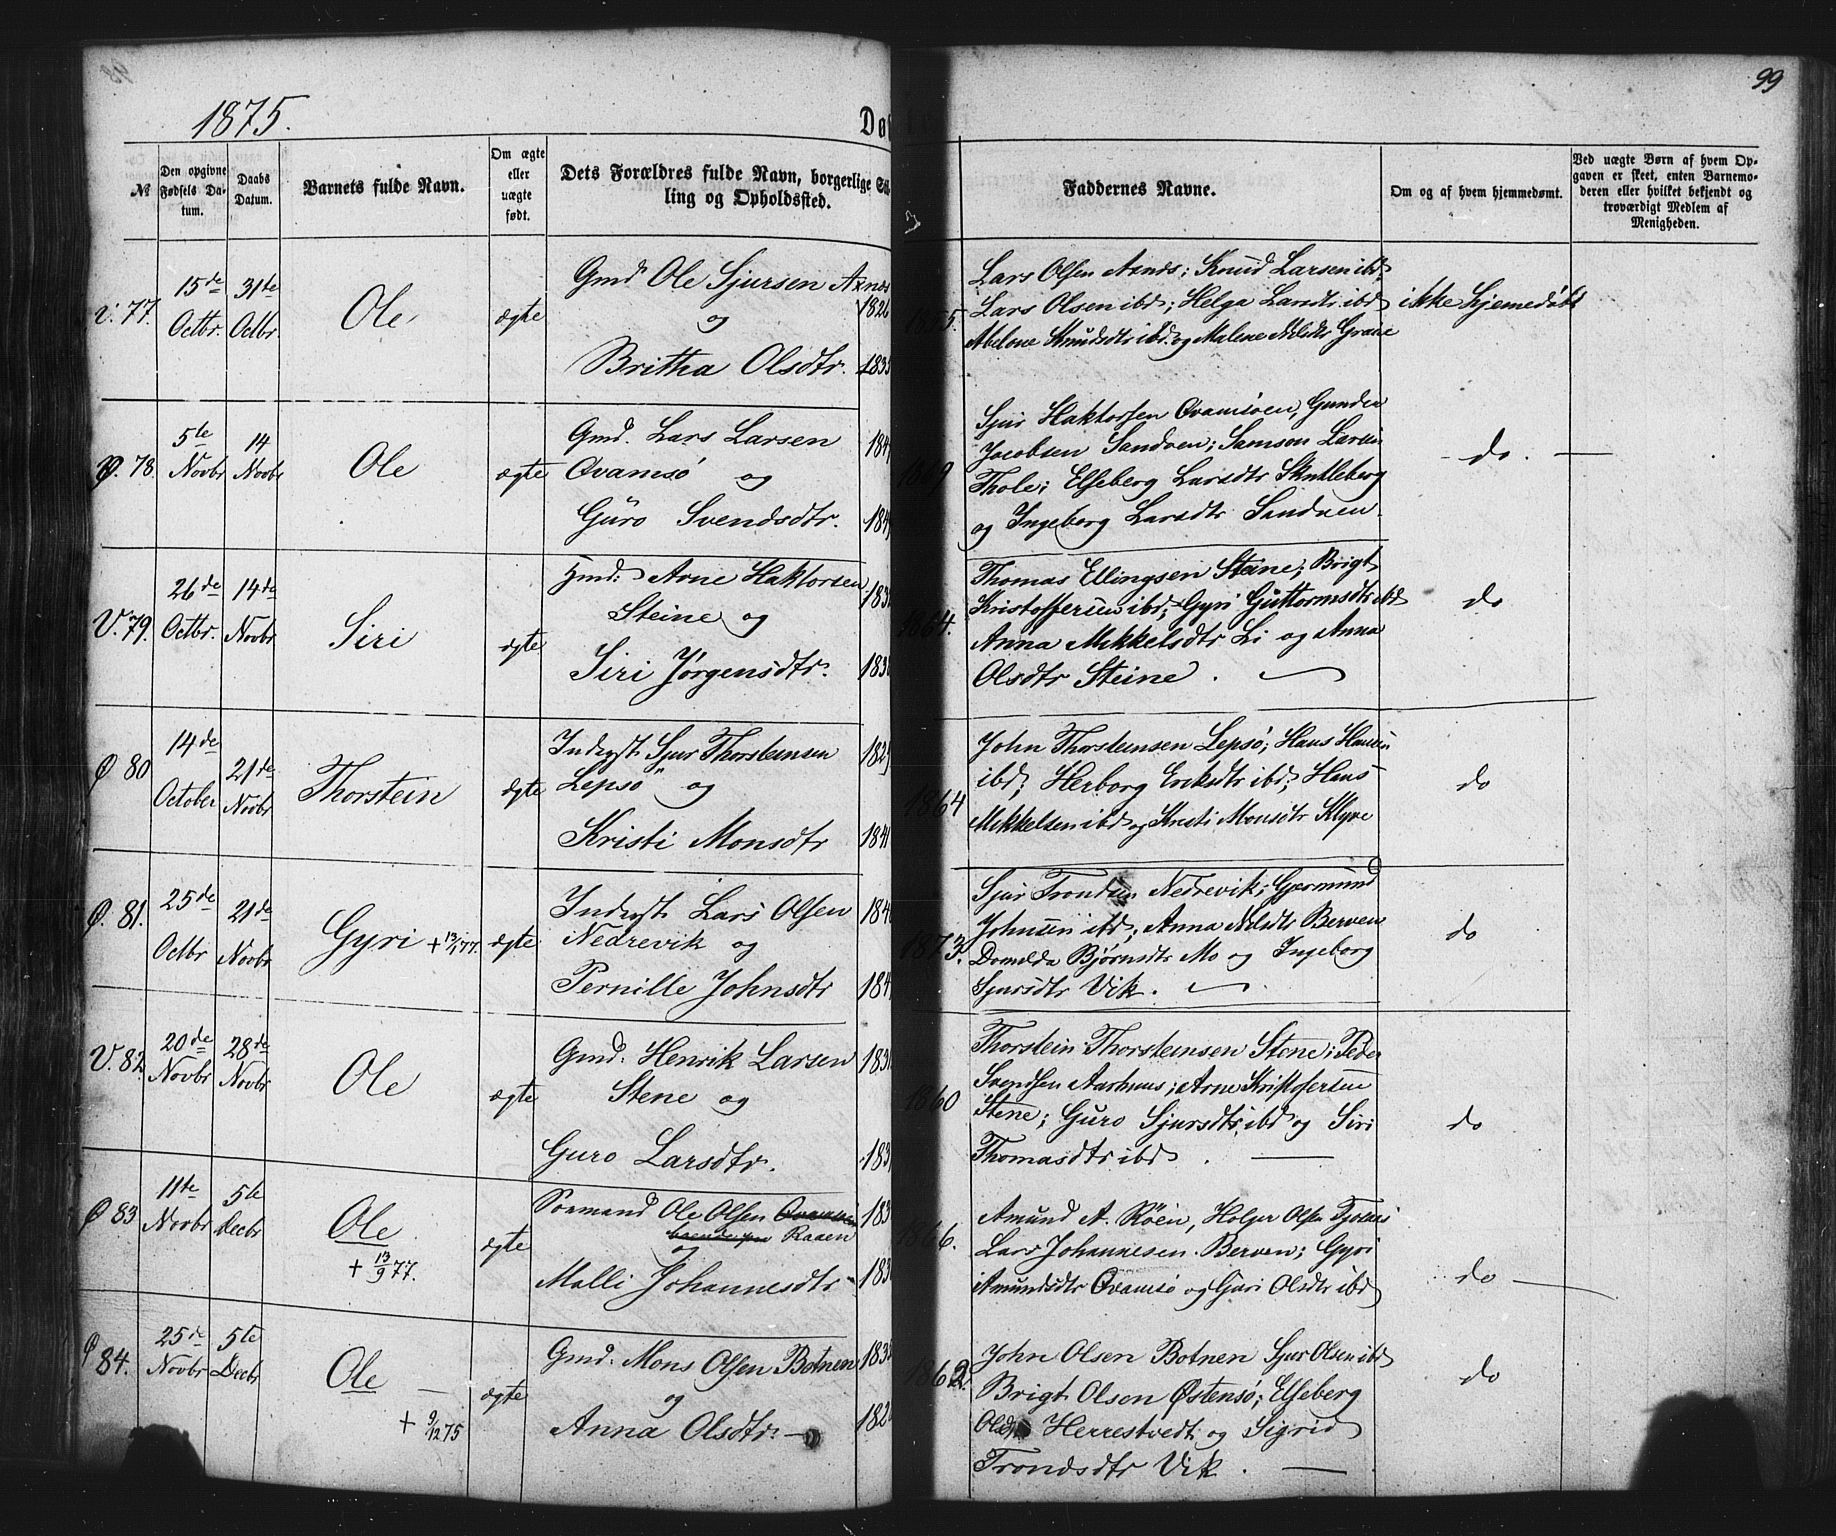 99
1875.
Dø
№
Den opgivne Fødsels Da-
tum.
Daabs Datum.
Barnets fulde Navn.
Om ægte eller uægte født.
Dets Forældres fulde Navn, borgerlige Stil-
ling og Opholdssted.
Faddernes Navne.
Om og af hvem hjemmedømt.
Ved uægte Børn af hvem Op-
gaven er skeet, enten Barnemo-
deren eller hvilket bekjendt og
troværdigt Medlem af
Menigheden.
V. 77.
15de Octbr.
31te Octbr.
Ole
ægte
Gmd Ole Sjursen Axnes 1826
og
Britha Olsdtr. 183
1875.
Lars Olsen Axnes; Knud Larsen ibd;
Lars Olsen ibd; Helga Larsdtr ibd
Abelone Knudsdtr ibd. og Malene Nilsdtr Grave
ikke hjemedøbt
Ø. 78.
5te Novbr
14 Novbr
Ole
ægte
Gmd. Lars Larsen 184
Øvamsö og
Guro Svendsdtr. 184
1869
Sjur Haktorsen Øvamsöen, Gunder
Jacobsen Sandven; Samson Larsen
Thole; Elseberg Larsdtr Skutleberg
og Ingeborg Larsdtr Sandven.
do.
V. 79.
26de Octbr.
14de Novbr
Siri
ægte
Gmd: Arne Haktorsen 183
Steine og
Siri Jørgensdtr. 183
1864.
Thomas Ellingsen Steine; Brigt
Kristoffersen ibd; Gyri Guttormsdtr ibd
Anna Mikkelsdtr Li og Anna
Olsdtr Steine.
do
Ø 80
14de October
21de Novbr
Thorstein
ægte
Inderst Sjur Thorsteinsen 182
Lepsö og
Kristi Monsdtr 1841
1864
John Thorsteinsen Lepsö; Hans Hansen
ibd; Herborg Eriksdtr ibd; Hans
Mikkelsen ibd og Kristi Monsdtr Klyve
do
Ø. 81.
25de Octbr
21de Novbr
Gyri + 13/1 77.
ægte
Inderst Lars Olsen 184
Nedrevik og
Pernille Johnsdtr 184
1873.
Sjur Trondsen Nedrevik; Gjermund
Johnsen ibd; Anna Nilsdtr Berven
Domelda Bjørnsdtr Mo og Ingeborg
Sjursdtr Vik.
do
V. 82.
20de Novbr
28de Novbr
Ole
ægte
Gmd. Henrik Larsen 183
Stene og
Guro Larsdtr. 183
1860
Thorstein Thorsteinsen Stene; Peder
Svendsen Aarhuus; Arne Kristofersen
Stene; Guro Sjursdtr ibd og Siri
Thomasdtr ibd.
do
Ø 83
11te Novbr
5te Decbr
Ole
+ 13/9 77.
ægte
Sørmand Ole Olsen 183
Raaen
og
Malli Johannesdtr 183
1866.
Amund A. Röen, Holger Olsen
Lars Johannesen Berven; Gyri
Amundsdtr Øvamsö og Guri Olsdtr ibd
do
Ø 84.
25de Novbr
5te Decbr
Ole
+ 9/12 75
ægte
Gmd. Mons Olsen Botnen 183
og
Anna Olsdtr. 182
1862.
John Olsen Botnen Sjur Olsen ibd
Brigt Olsen Østensö; Elseberg
Herrestvedt og Sigrid
Trondsdtr Vik.
do